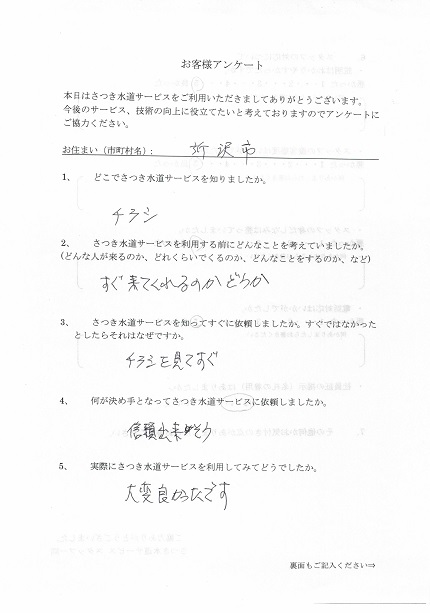 お客様アンケート
本日はさつき水道サービスをご利用いただきましてありがとうございます。
今後のサービス、技術の向上に役立てたいと考えておりますのでアンケートに
ご協力ください。
お住まい（市町村名）： 所沢市
1、 どこでさつき水道サービスを知りましたか。
チラシ
2、 さつき水道サービスを利用する前にどんなことを考えていましたか。
(どんな人が来るのか、どれくらいでくるのか、どんなことをするのか、など)
すぐ来てくれるのかどうか
3、 さつき水道サービスを知ってすぐに依頼しましたか。すぐではなかった
としたらそれはなぜですか。
チラシを見てすぐ
4、 何が決め手となってさつき水道サービスに依頼しましたか。
信頼出来そう
5、 実際にさつき水道サービスを利用してみてどうでしたか。
大変良かったです
裏面もご記入ください⇒